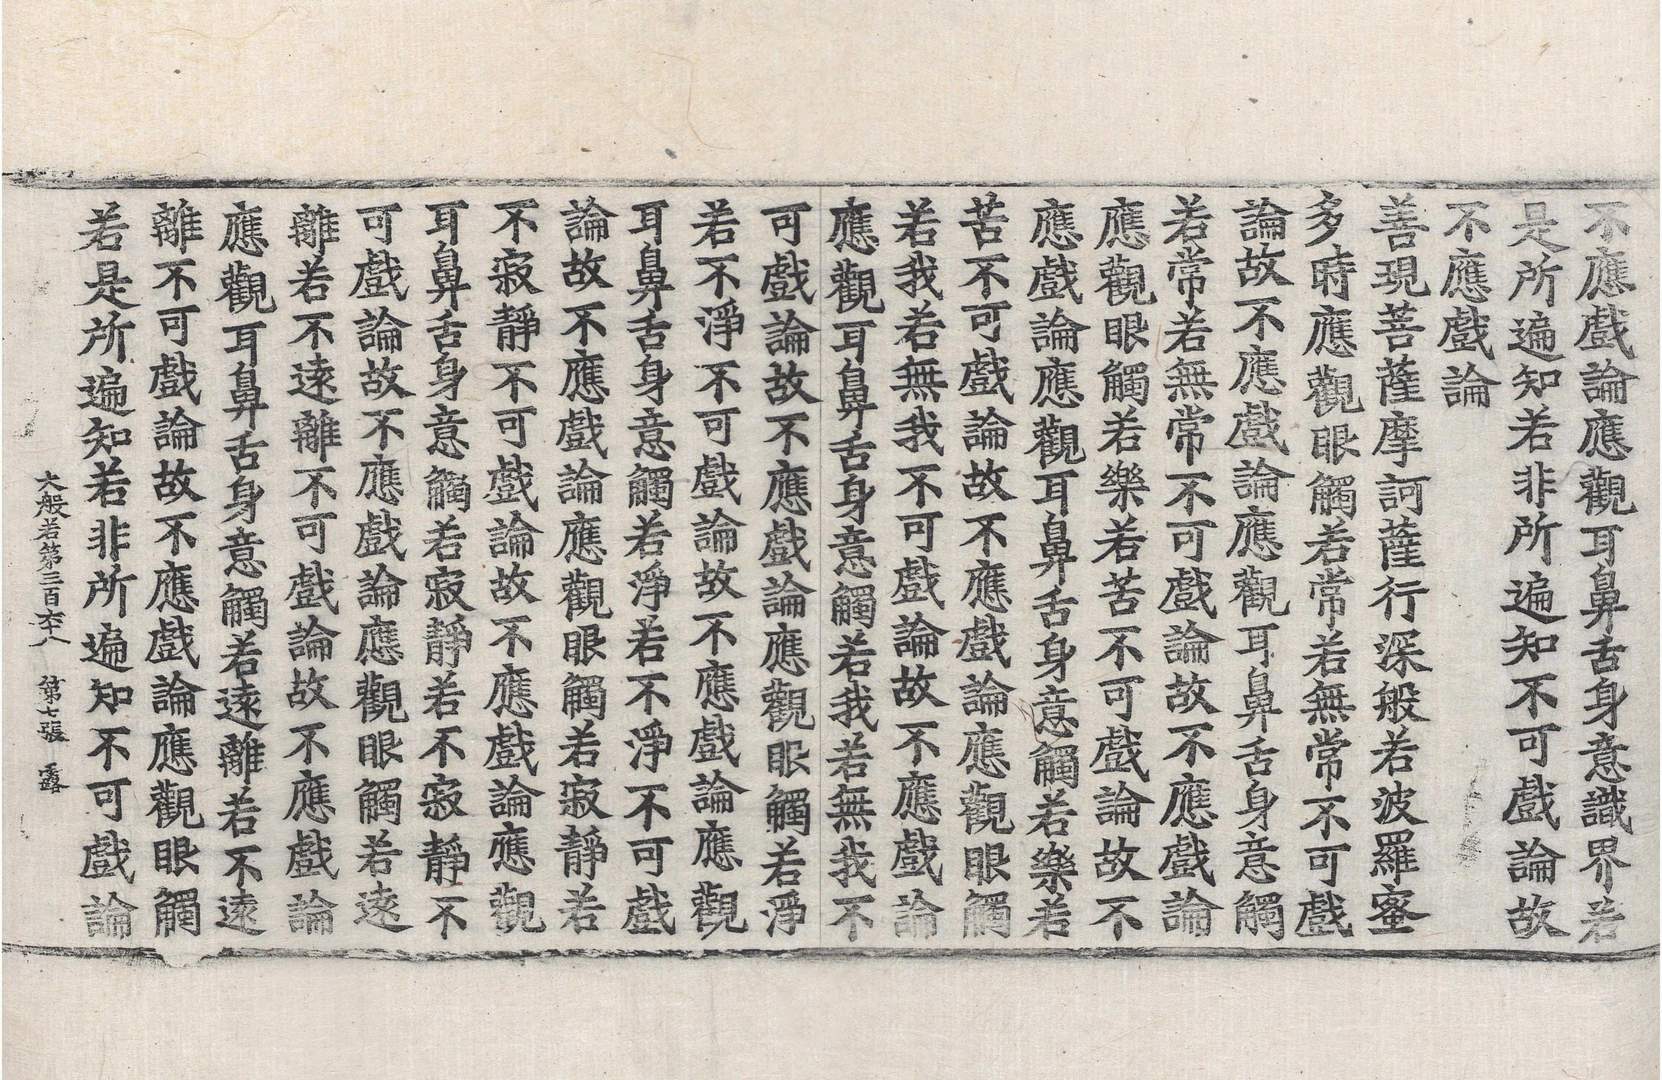 不應戲論應觀耳鼻舌身意識界若
是所遍知若非所遍知不可戲論故
不應戲論
善現菩薩摩訶薩行深般若波羅蜜
多時應觀眼觸若常若無常不可戲
論故不應戲論應觀耳鼻舌身意觸
若常若無常不可戲論故不應戲論
應觀眼觸若樂若苦不可戲論故不
應戲論應觀耳鼻舌身意觸若樂若
苦不可戲論故不應戲論應觀眼觸
若我若無我不可戲論故不應戲論
應觀耳鼻舌身意觸若我若無我不
可戲論故不應戲論應觀眼觸若淨
若不淨不可戲論故不應戲論應觀
耳鼻舌身意觸若淨若不淨不可戲
論故不應戲論應觀眼觸若寂靜若
不寂靜不可戲論故不應戲論應觀
耳鼻舌身意觸若寂靜若不寂靜不
可戲論故不應戲論應觀眼觸若遠
離若不遠離不可戲論故不應戲論
應觀耳鼻舌身意觸若遠離若不遠
離不可戲論故不應戲論應觀眼觸
若是所遍知若非所遍知不可戲論
大般若第三百六十八 第七張 露